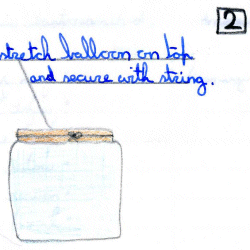 2
stretch balloon on top
and secure with string.